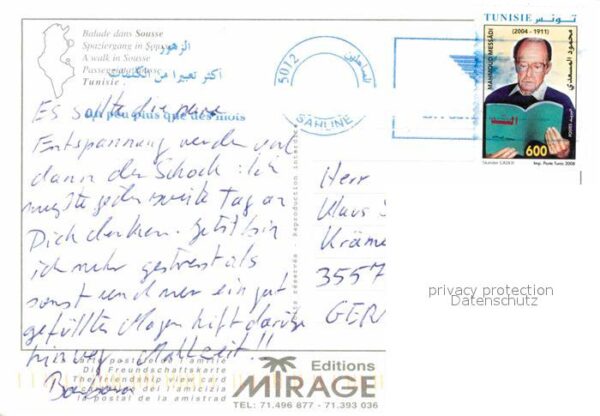 Balade dans Sousse
Spaziergang in Sousse
A walk in Sousse
Passeggiata Sousse
Tunisie
الزهور
أكثر تعبيرا من الكلمات
un peu plus que des mots
5012
SAHLINE
TUNISIE تونس
(2004 - 1911)
MAHMOUD MESSADI
محمود المسعدي
600
Imp. Poste Tunis 2008
Es sollte die pure
Entspannung werden und
dann der Schock: Ich
musste jede zweite Tag an
Dich denken. Jetzt bin
ich mehr gestresst als
sonst und nur ein gut
gefüllter Magen hilft darüber
hinweg. Mahlzeit!!
Barbara
Herr
Klaus S
Kräme
3557
GER
Reproduction interdite
privacy protection
Datenschutz
La carte postale de l'amitié
Die Freundschaftskarte
The friendship view card
dei l'amicizia
la postal de la amistrad
Editions
MIRAGE
TEL: 71.496 877 - 71.393 036